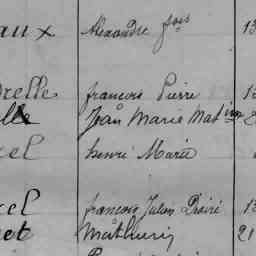 aux Alexandre fois 13
relle françois Pierre
lle Jean Marie Mat
el henri Marie
el françois Julien Désiré 13
et Mathurin 21